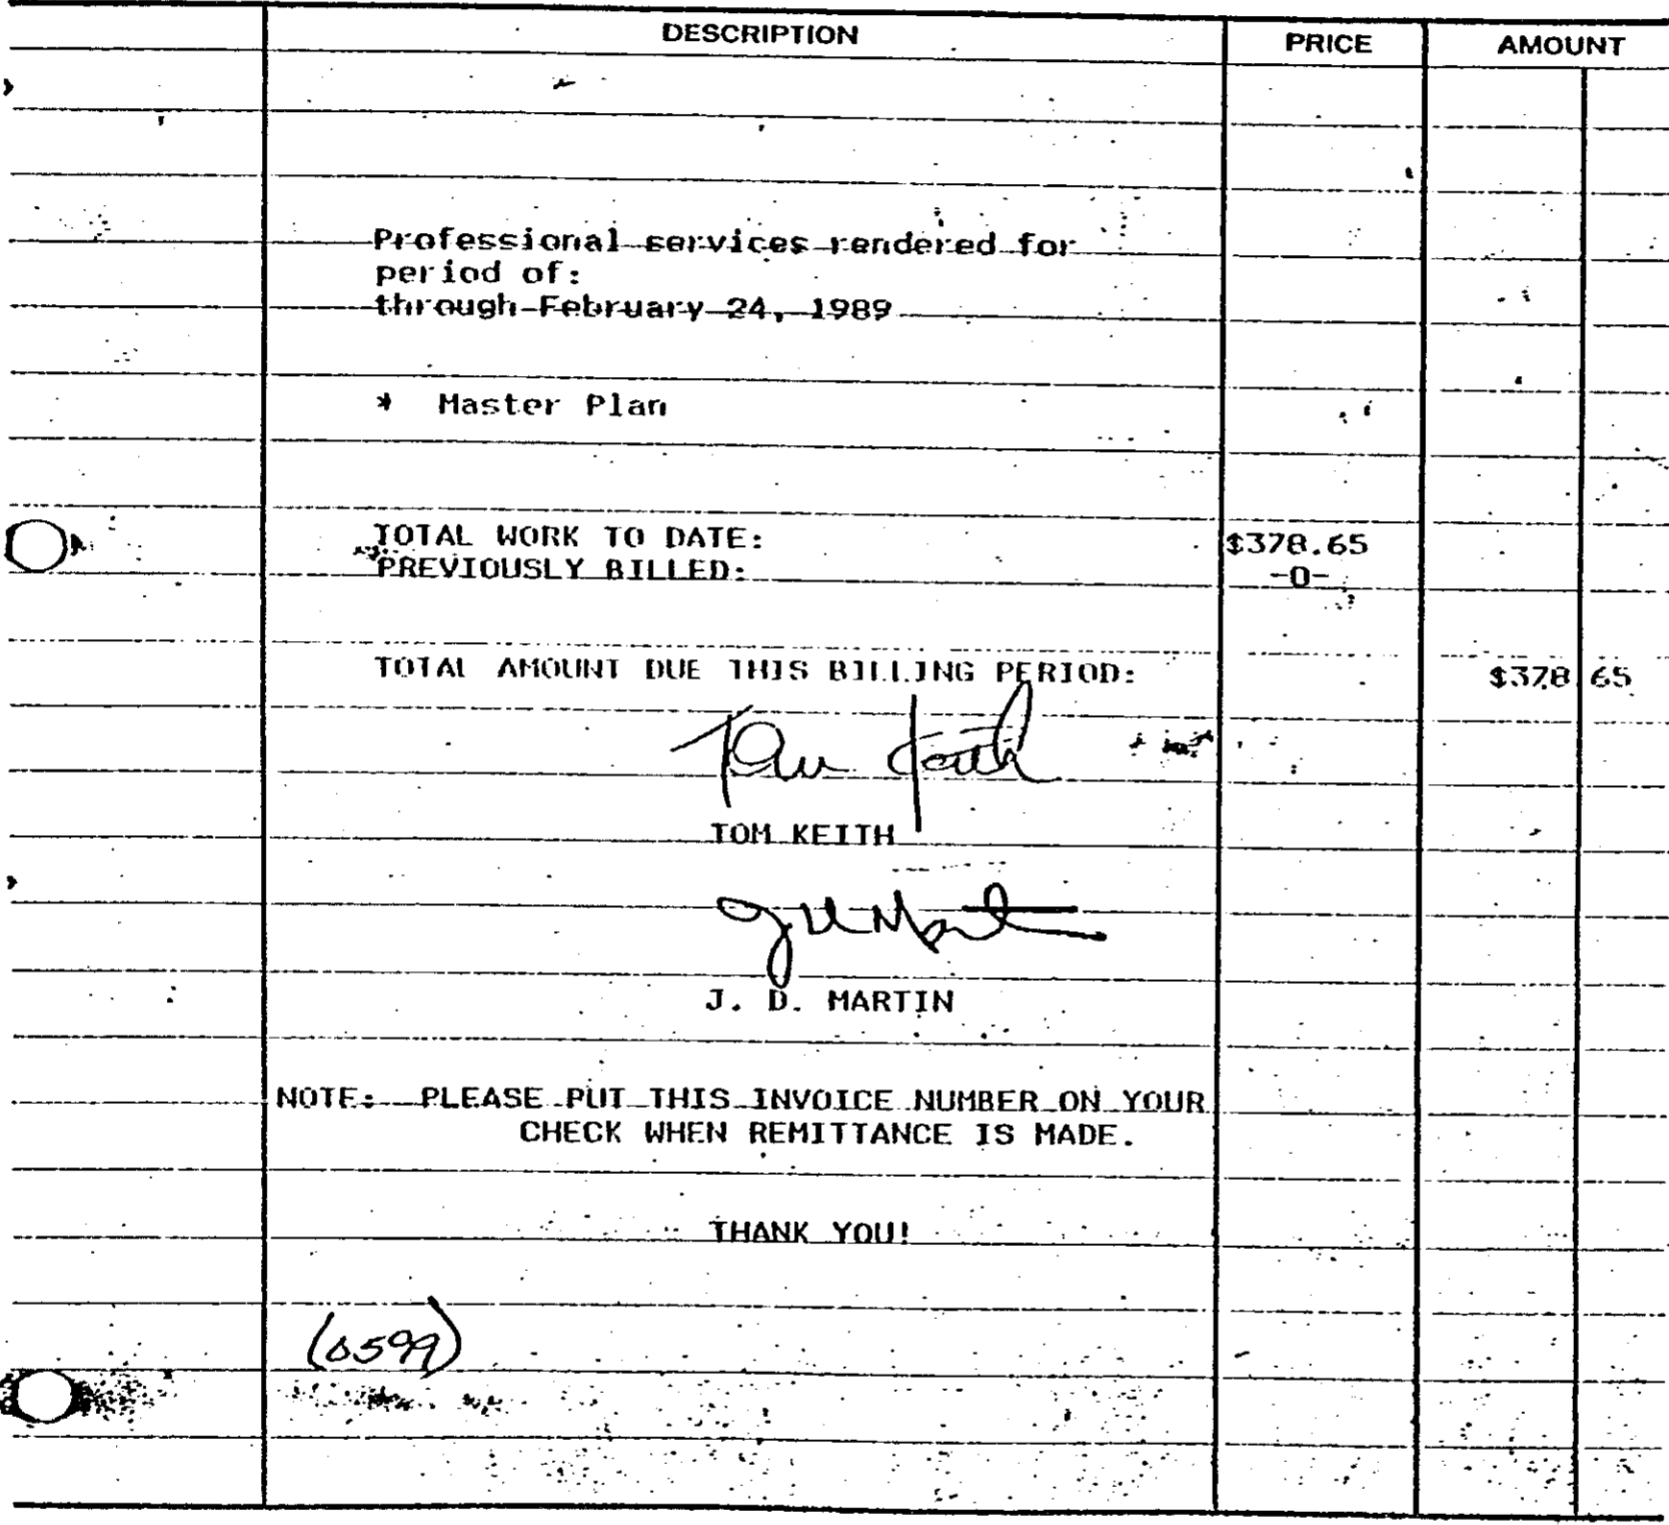 DESCRIPTION PRICE AMOUNT
Professional services rendered for
period of:
through February 24, 1989
* Master Plan
TOTAL WORK TO DATE: $378.65
PREVIOUSLY BILLED: -0-
TOTAL AMOUNT DUE THIS BILLING PERIOD: $378 65
Tom Keith
TOM KEITH
J D Martin
J. D. MARTIN
NOTE: PLEASE PUT THIS INVOICE NUMBER ON YOUR
CHECK WHEN REMITTANCE IS MADE.
THANK YOU!
(0599)